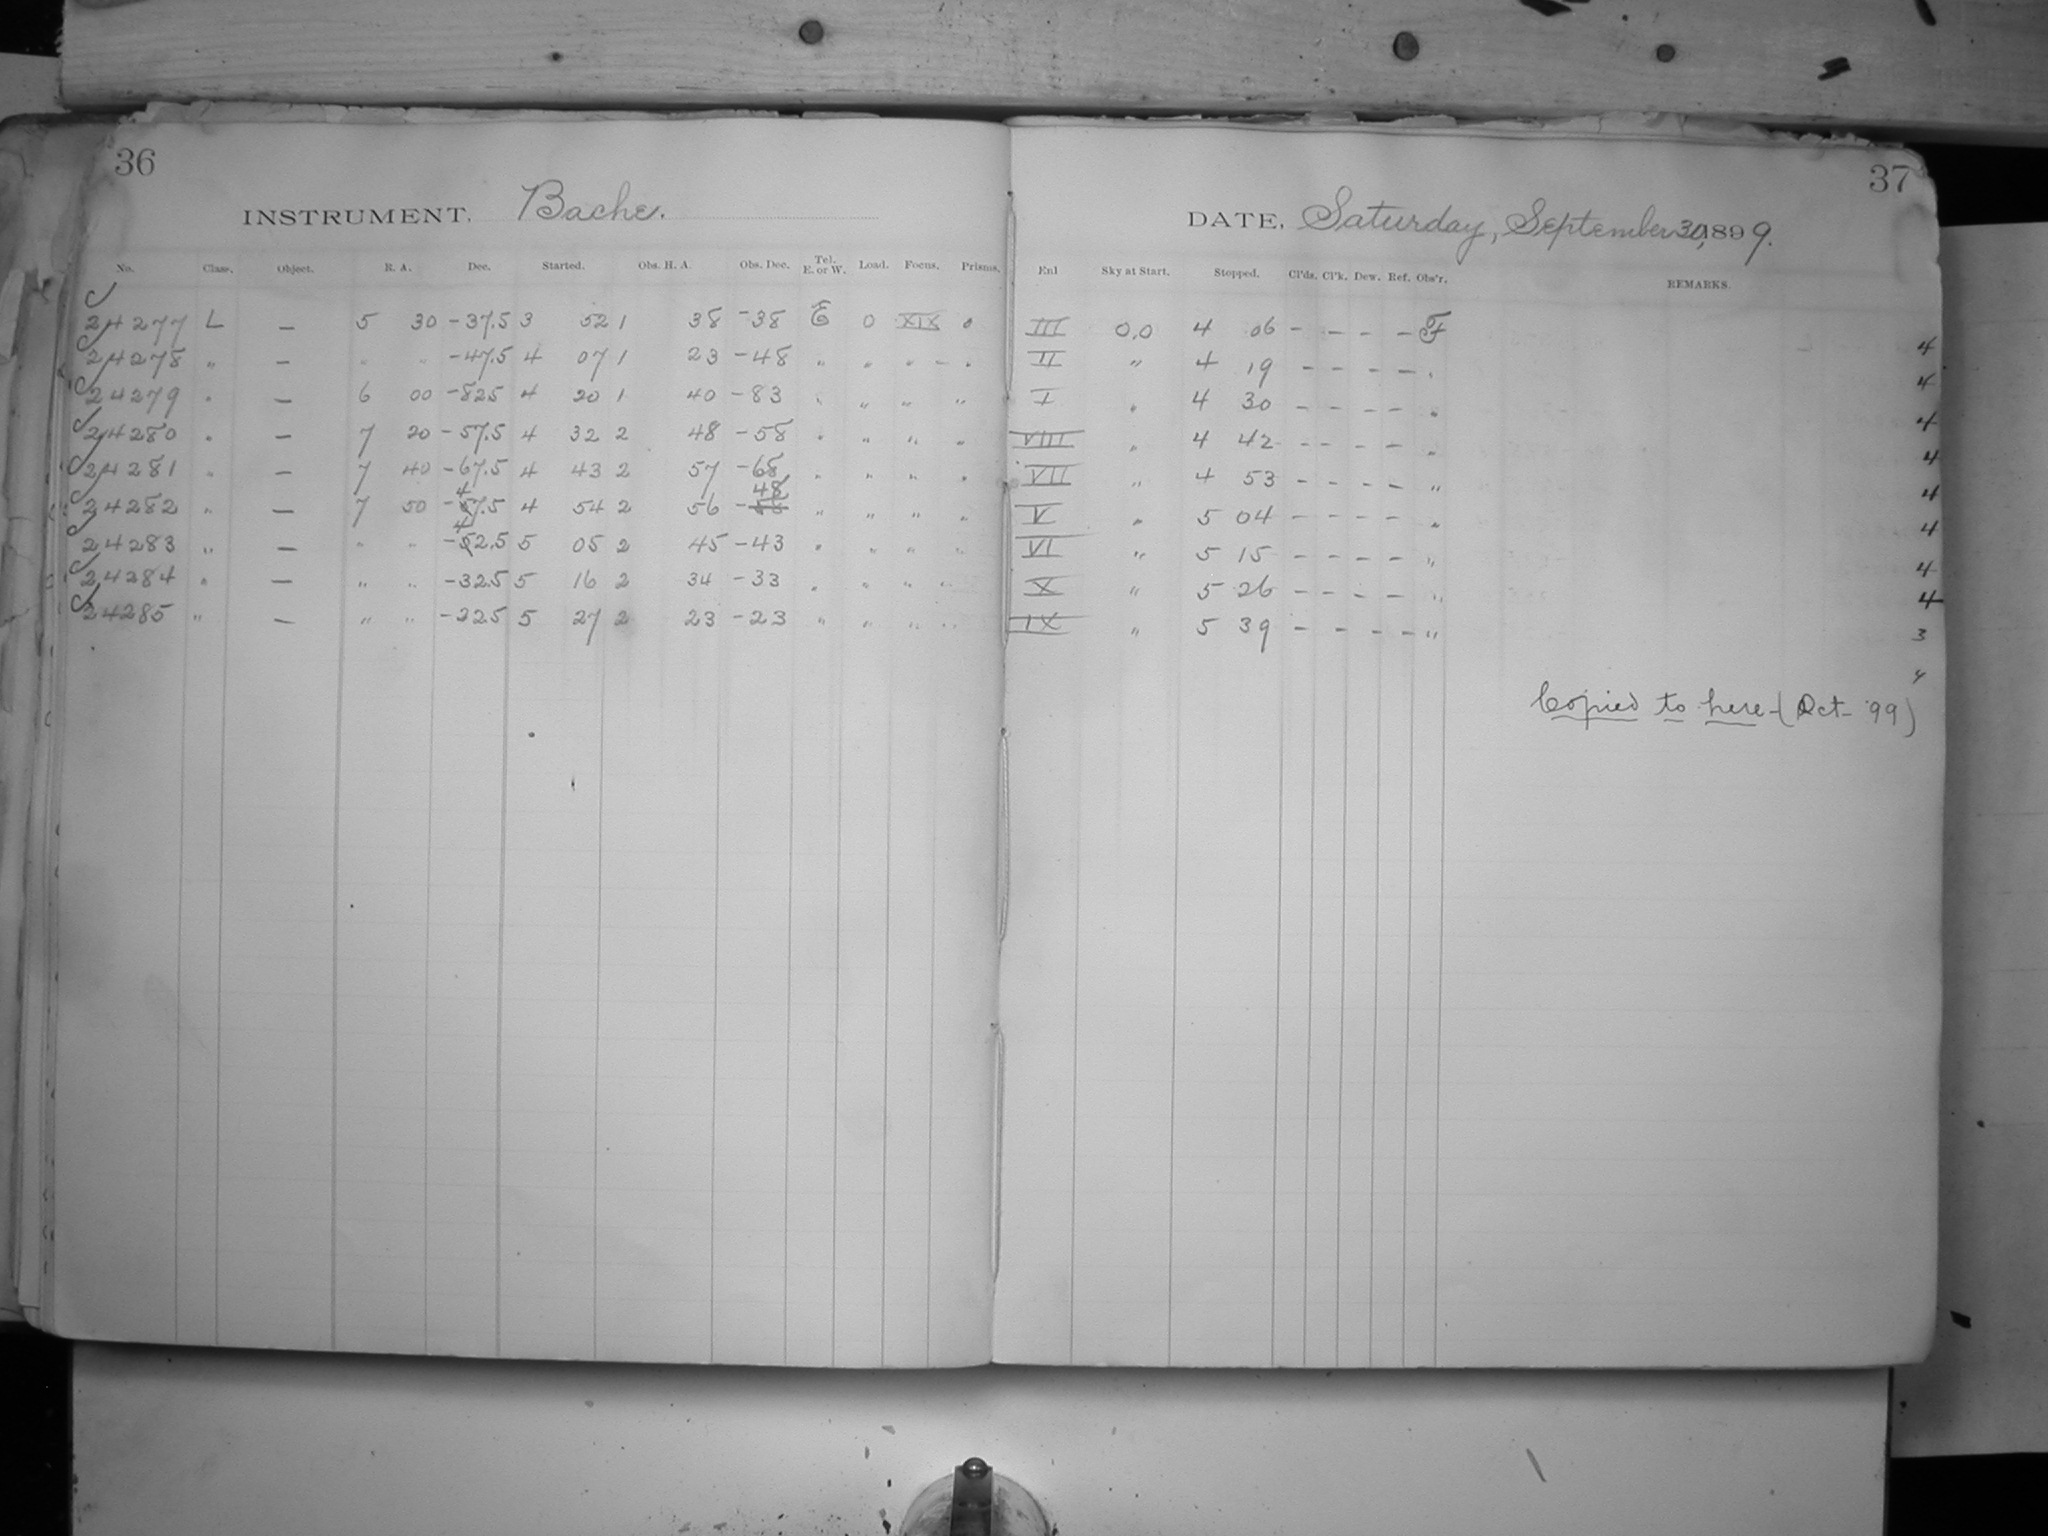 36
INSTRUMENT. Bache.
No. Class. Object. R. A. Dec. Started. Obs. H. A. Obs. Dec. Tel. E. or W. Load. Focus. Prisms.
24277 L — 5 30 -37.5 3 52 1 38 -38 E 0 XIX 0
24278 " — " " -47.5 4 07 1 23 -48 " " " - "
24279 " — 6 00 -825 4 20 1 40 -83 " " " "
24280 " — 7 20 -57.5 4 32 2 48 -58 " " " "
24281 " — 7 40 -67.5 4 43 2 57 -68 " " " "
24282 " — 7 50 -47.5 4 54 2 56 -48 " " " "
24283 " — " " -42.5 5 05 2 45 -43 " " " "
24284 " — " " -325 5 16 2 34 -33 " " " "
24285 " — " " -225 5 27 2 23 -23 " " " "
37
DATE. Saturday, September 30, 1899.
Enl Sky at Start. Stopped. Cl'ds. Cl'k. Dew. Ref. Obs'r. REMARKS.
III 0,0 4 06 - - - - F 4
II " 4 19 - - - - " 4
I " 4 30 - - - - " 4
VIII " 4 42 - - - - " 4
VII " 4 53 - - - - " 4
V " 5 04 - - - - " 4
VI " 5 15 - - - - " 4
X " 5 26 - - - - " 4
IX " 5 39 - - - - " 3
Copied to here-(Oct- '99)